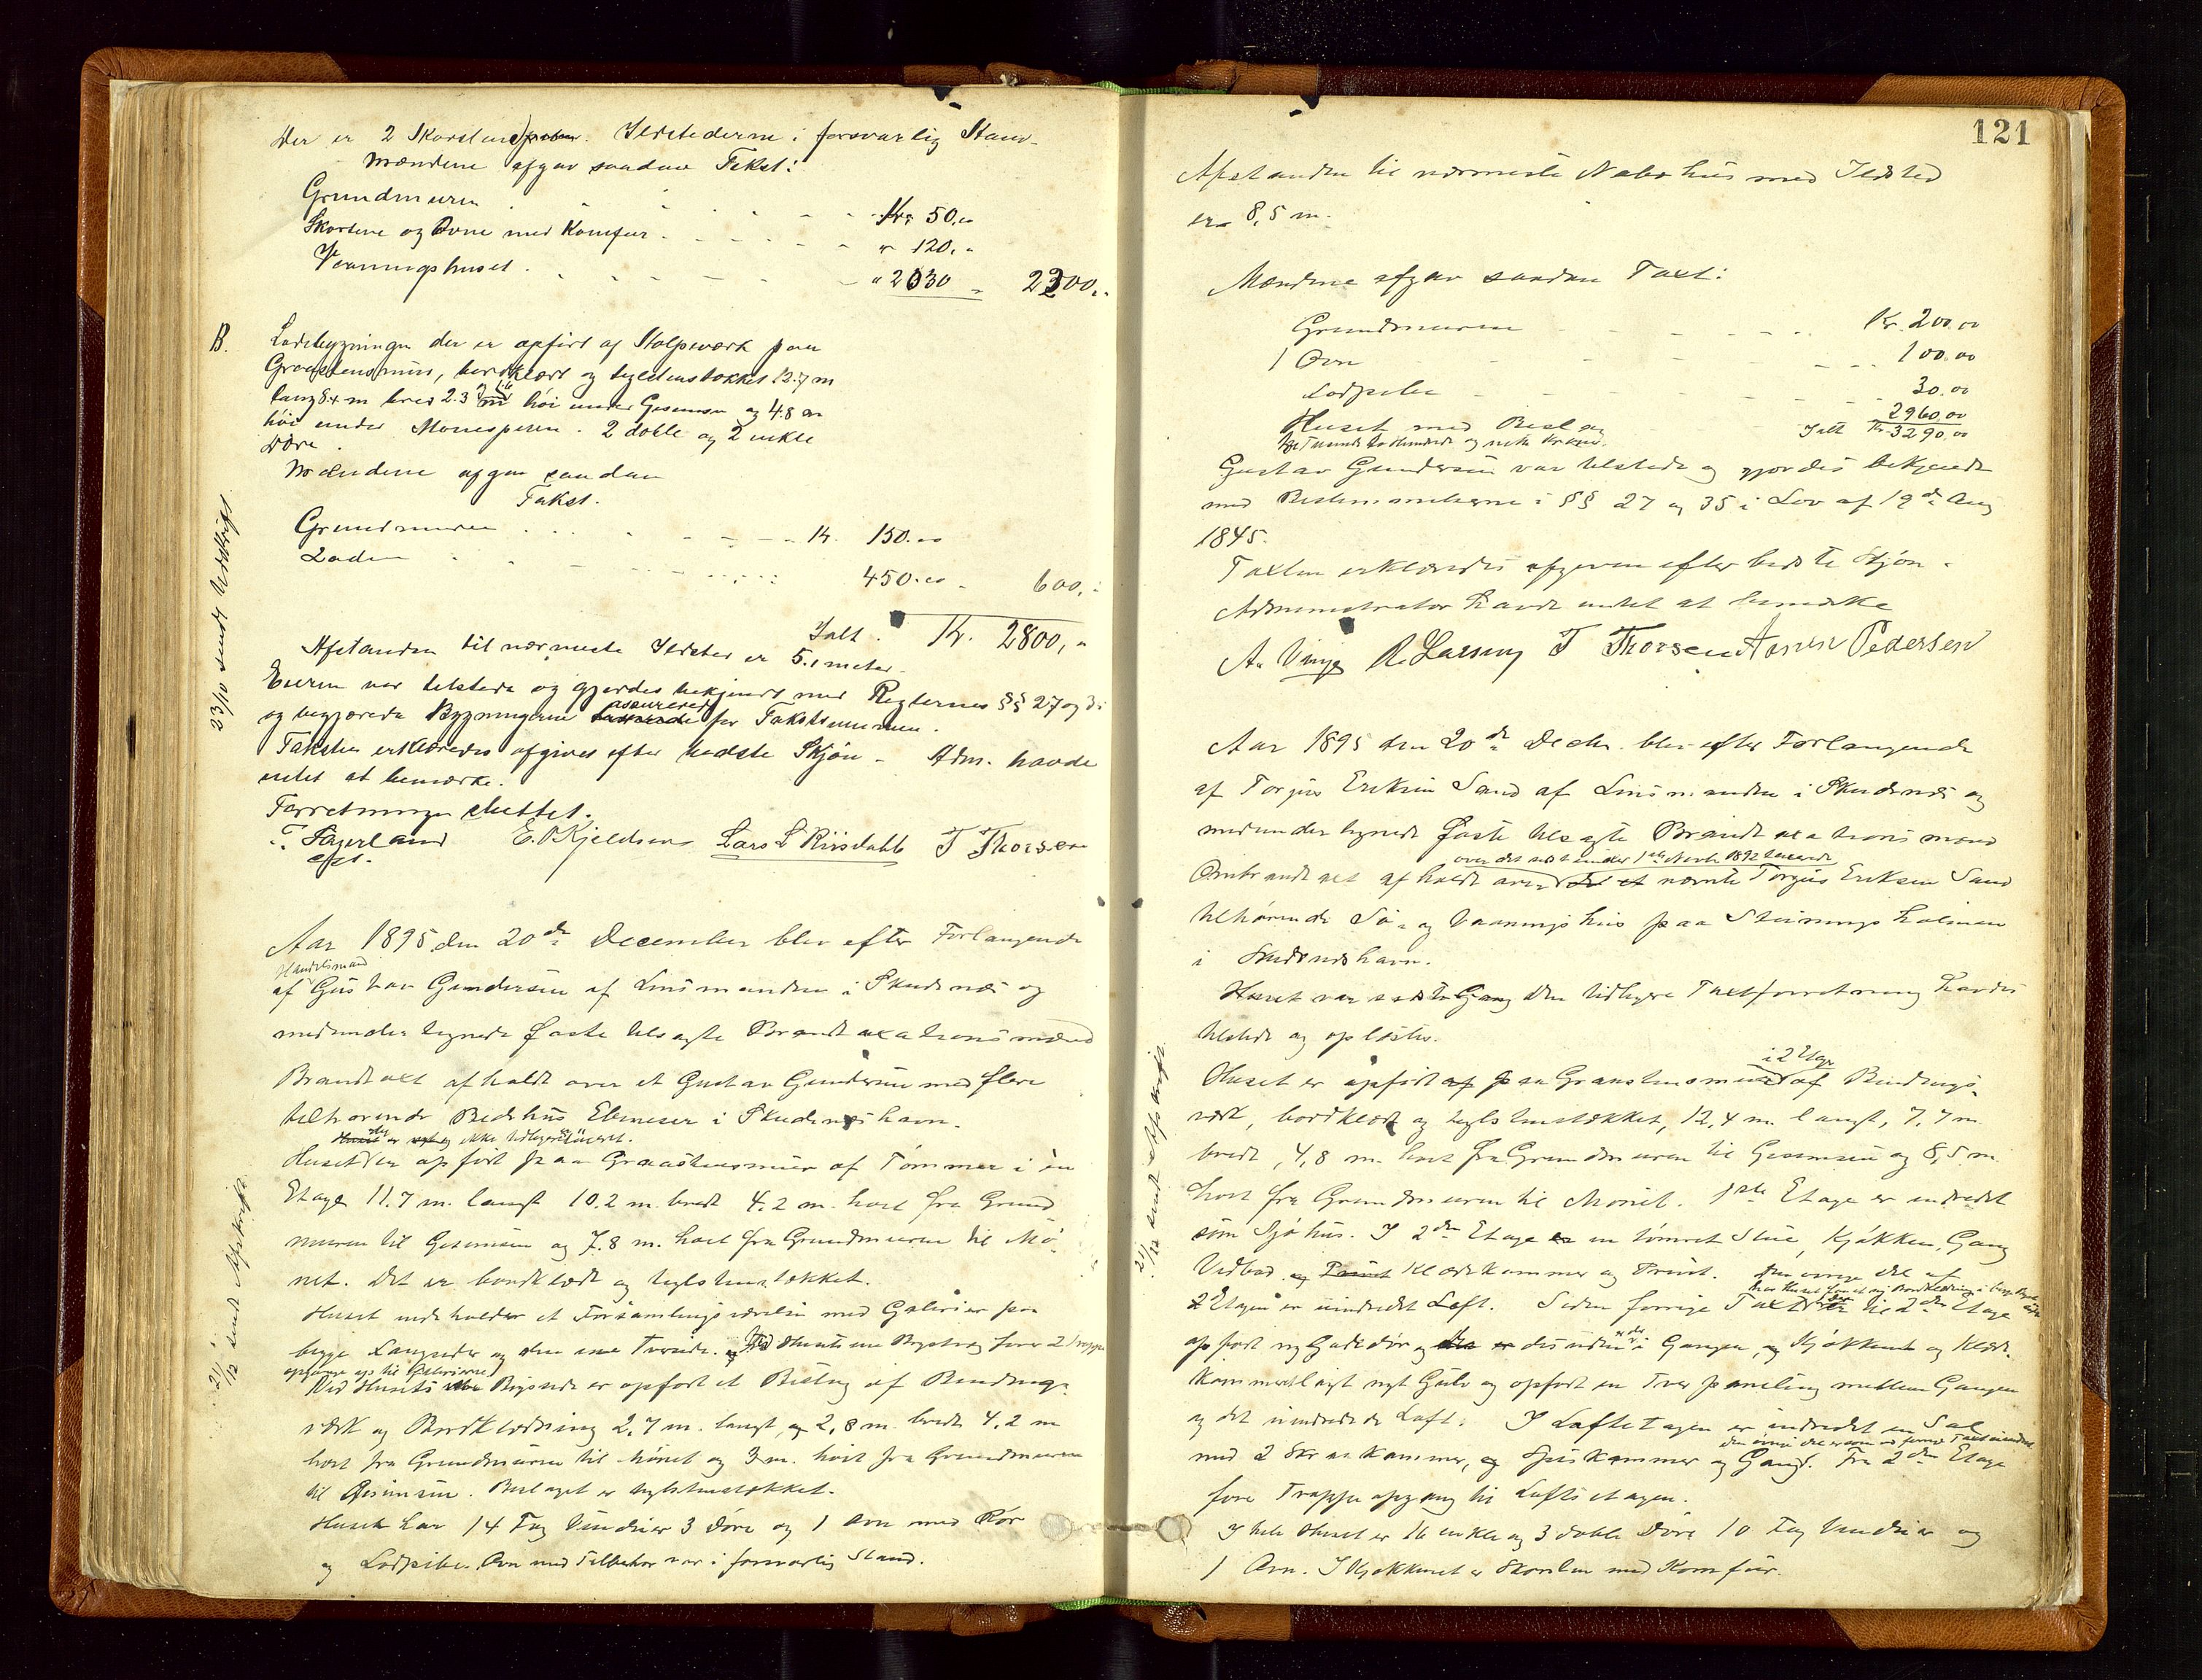 Der er 2 Skorstenspiber. Ildstederne i forsvarlig Stand.
Mændene afgav saadan Takst:
Grundmuren Kr. 50.00
Skorstene og Ovne med Komfur " 120, "
Vaaningshuset " 2030 " 2200, "
B. Ladebygningen der er opført af Stolpeverk paa
Graastensmur, bordklædt og teglstenstækket 12.7 m
lang 8.4 m bred 2.3 m høi under Gesimsen og 4.8 m
høi under Mønesperen. 2 doble og 2 enkle
Døre.
Mændene afgav saadan
Takst.
Grundmuren Kr. 150.00
Laden 450.00 600, "
Ialt Kr. 2800, "
Afstanden til nærmeste Ildsted er 5.1 meter.
Eieren var tilstede og gjordes bekjendt med Reglernes §§ 27 og
og begjærede Bygningerne assurered for Takstsummen.
Taksten erklæredes afgiven efter bedste Skjøn. Adm. havde
intet at bemærke.
Forretningen sluttet.
T. Fagerland E. O Kjeldsen Lars L Riisdahl T Thorsen
23/10 sendt Udskrift
Aar 1895 den 20de December blev efter Forlangende
Handelsmand
af Gustav Gundersen af Lensmanden i Skudenes og
medundertegnede faste tilsagte Brandtaxationsmænd
Brandtaxt afholdt over et Gustav Gundersen med flere
tilhørende Bedehus Ebeneser i Skudeneshavn.
Huset er nyt og ikke tidligere
Huset er opført paa Graastensmur af Tømmer i en
Etage 11.7 m. langt 10.2 m. bredt 4.2 m. høit fra Grund
muren til Gesimsen og 7.8 m. høit fra Grundmuren til Mø
net. Det er bordklædt og teglstenstækket.
Huset indeholder et Forsamlingsværelse med Gallerier paa
begge Langsider og den ene Tverside. Ved Husets ene fører 2 Trappe
opgange op til Gallerierne
Ved Husets Bagside er opført et Bislag af Bindings
værk og Bordklædning 2,7 m. langt, og 2,8 m. bredt 4.2 m
høit fra Grundmuren til Mønet og 3 m. høit fra Grundmuren
til Gesimsen. Bislaget er teglstenstækket.
Huset har 14 Fag Vinduer 3 Døre og 1 Ovn med Rør
og Lodpibe. Ovn med Tilbehør var i forsvarlig Stand.
21/12 sendt Afskrift
121
Afstanden til nærmeste Nabohus med Ildsted
er 8,5 m.
Mændene afgav saadan Taxt:
Grundmuren Kr. 200.00
1 Ovn 100.00
Lodpibe 30.00
Huset med Bislag 2960.00
Tre Tusinde to Hundrede og nitti Kroner. Ialt Kr. 3290.00
Gustav Gundersen var tilstede og gjordes bekjendt
med Bestemmelserne i §§ 27 og 35 i Lov af 19de Aug
1845.
Taxten erklæredes afgiven efter bedste Skjøn.
Administrator havde intet at bemærke
A. Vinje R Larsen T Thorsen Pedersen
Aar 1895 den 20de Decbr. blev efter Forlangende
af Torgius Eriksen Sand af Lensmanden i Skudenes og
medundertegnede faste tilsagte Brandtaxationsmænd
over det sidst under 1ste Novb 1892 taxerede
Ombrandtaxt afholdt over det et nævnte Torgius Eriksen Sand
tilhørende Sø- og Vaaningshus paa Steiningsholmen
i Skudeneshavn.
Huset var sidste Gang Den tidligere Taxtforretning havdes
tilstede og oplæstes.
i 2 Etage
Huset er opført af paa Graastensmur af Bindings
værk, bordklædt og teglstenstækket, 12,4 m. langt, 7,7 m.
bredt, 4,8 m. høit fra Grundmuren til Gesimsen og 8,5 m.
høit fra Grundmuren til Mønet. 1ste Etage er indredet
som Sjøhus. I 2den Etage er en tømret Stue, Kjøkken, Gang
Vedbod og Privet Klædekammer og Privet. Den øvrige del af
2 Etagen er uindredet Loft. Siden forrige Taxt er til 2den Etage
opført ny Gadedør og desuden i Gangen, og Kjøkkenet og Klæde
kammeret lagt nyt Gulv og opført en Tverpaneling mellem Gangen
og det uindredede Loft. I Loftetagen er indredet en Sal
med 2 Skraakammer, og Spiskammer og Gang. Fra 2den Etage
fører Trappeopgang til Loftsetagen.
I hele Huset er 16 enkle og 3 doble Døre 10 Fag Vinduer og
1 Ovn. I Kjøkkenet er Skorsten med Komfur.
21/12 sendt Afskrift